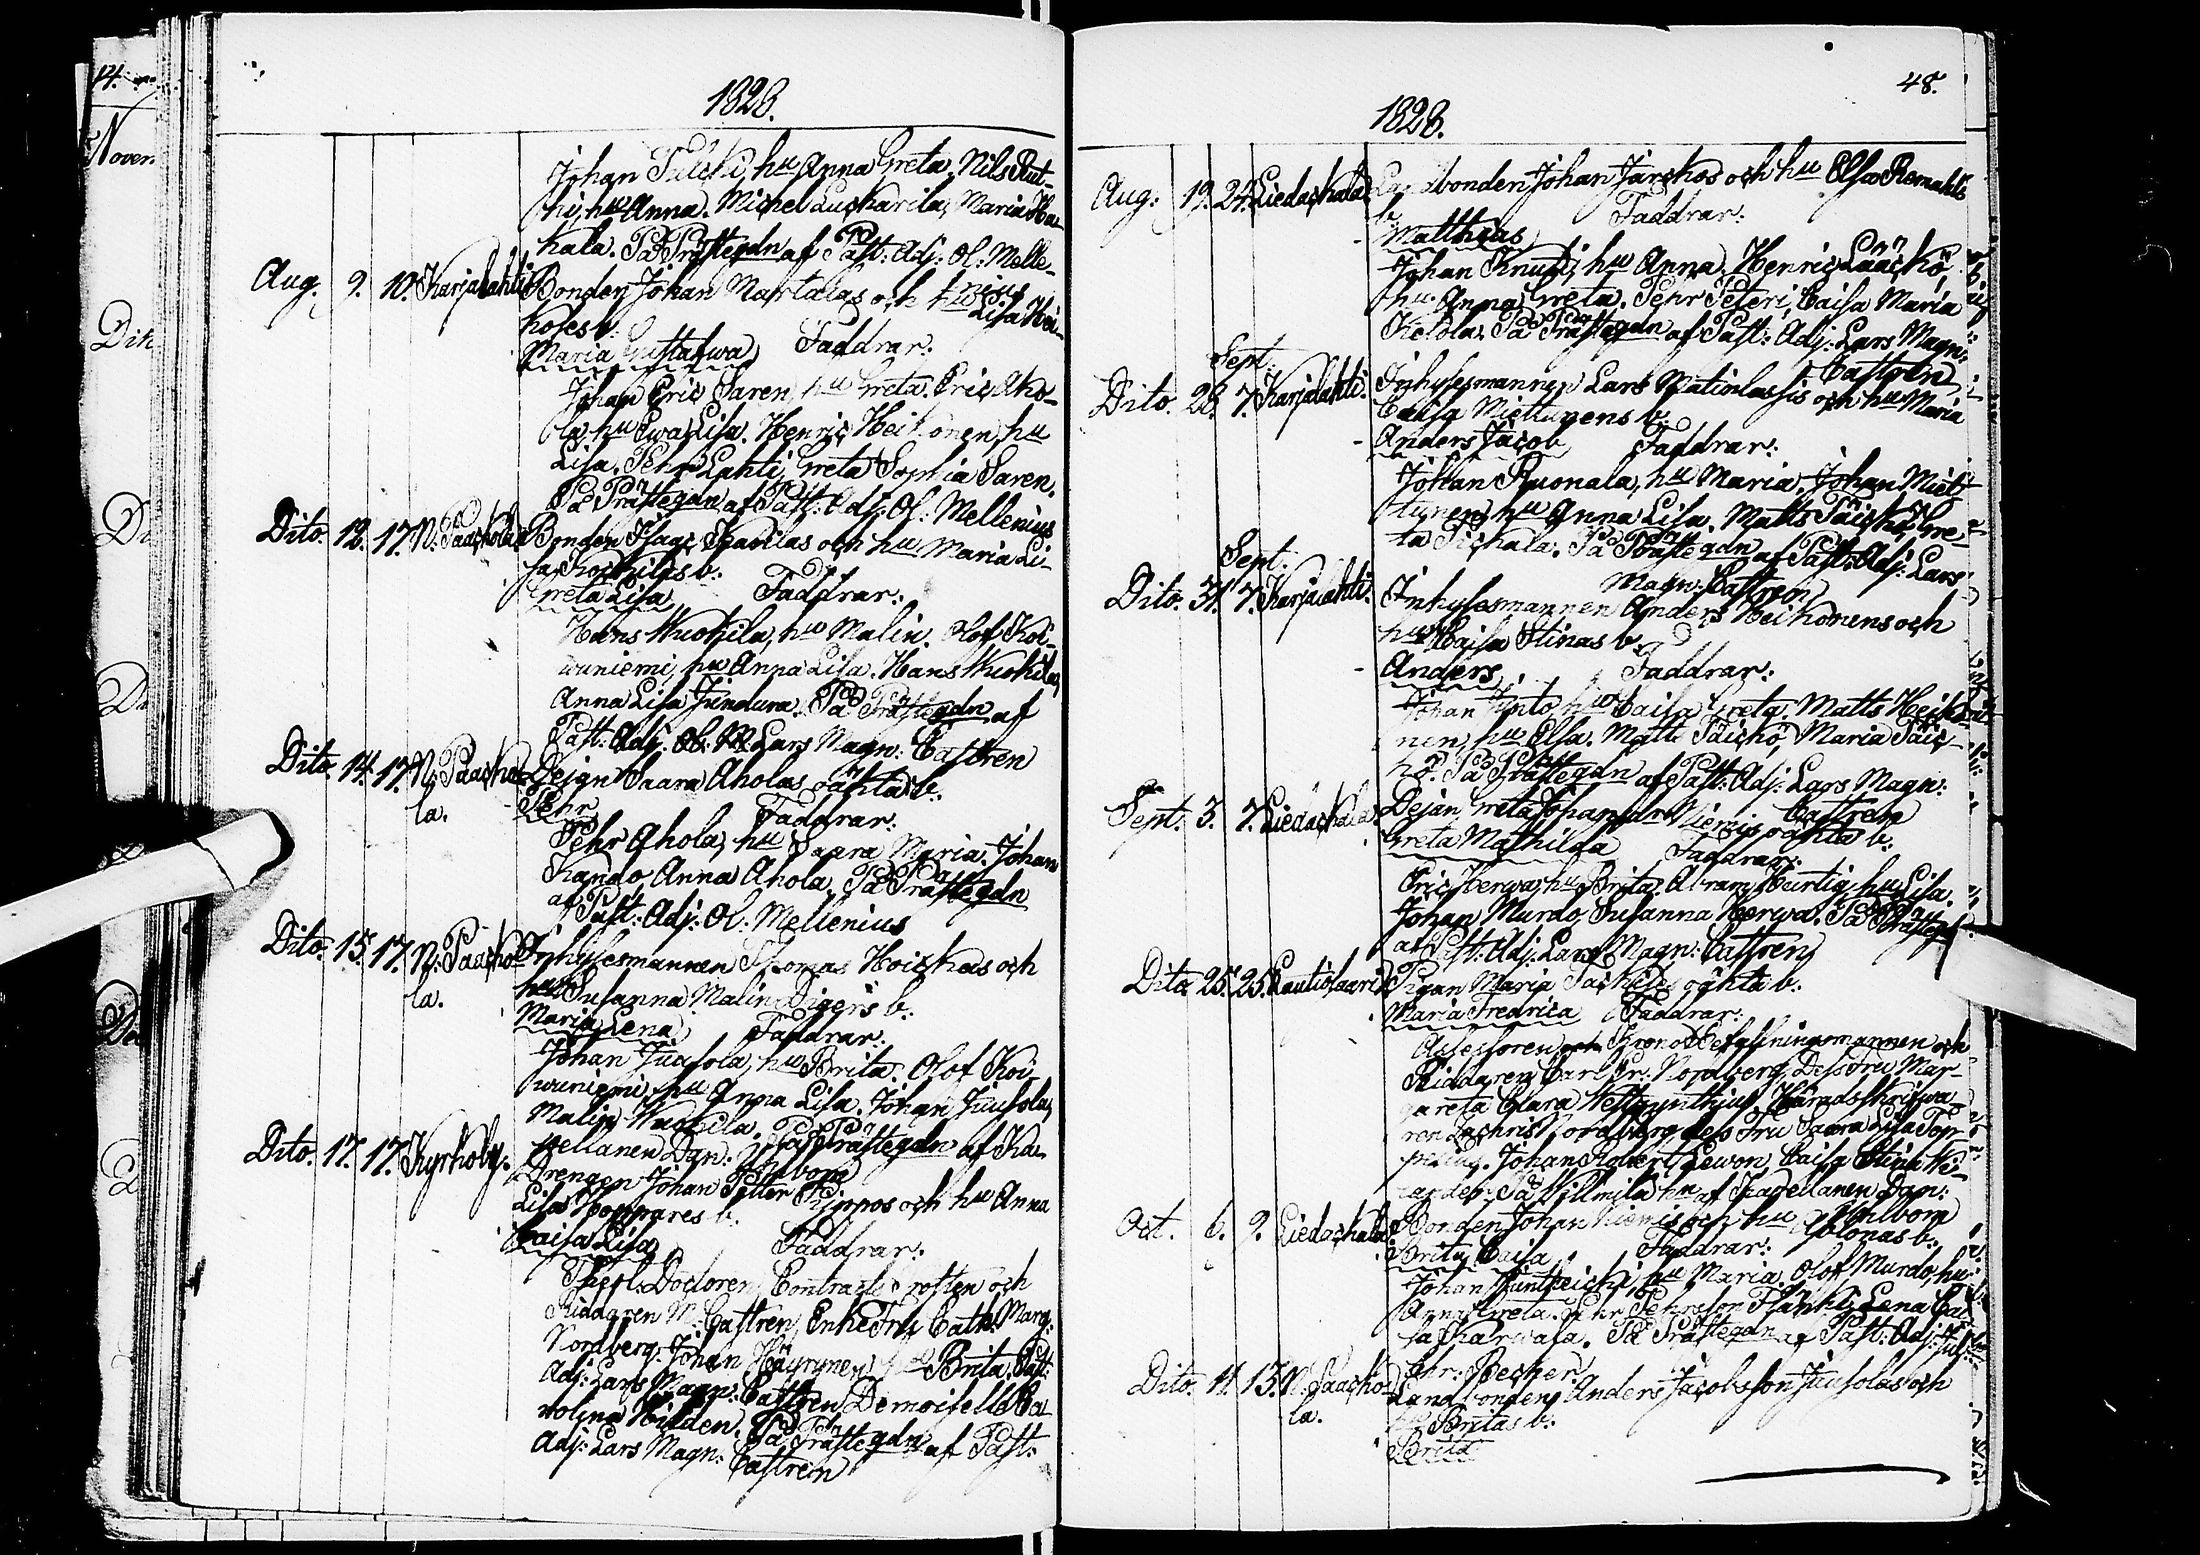 1828.
Johan Tulcki, hu Anna Greta. Nils Rut-
hi, hu Anna. Michel Luskarila, Maria Ha-
kala. På Prästegdn af Past: Adj: Ol: Melle-
nius
Aug. 9. 10. Karjalahti Bonden Johan Martalas och hu Lisa Hei-
koses b:
Maria Gustafwa Faddrar:
Johan Eric Saren, hu Greta. Eric Aho-
la, hu Ewa Lisa. Henric Heikonen, hu
Lisa. Pehr Lahti, Greta Sophia Saren.
På Prästegdn af Past: Adj: Ol: Mellenius
Dito. 12. 17. N. Paackola Bonden Isaac Kaurilas och hu Maria Li-
sa b:
Greta Lisa Faddrar:
Hans Wuokila, hu Malin. Olof Koi-
wuniemi, hu Anna Lisa. Hans Wuokila,
Anna Lisa Jundura. På Prästegdn af
Past: Adj: Lars Magn: Castren
Dito. 14. 17. N. Paacko- Deign Saara Aholas oäkta b:
la. Pehr Faddrar:
Pehr Ahola, hu Saara Maria. Johan
Kando Anna Ahola. På Prästegdn
af Past: Adj: Ol: Mellenius
Dito. 15. 17. N. Paacko- Inhysesmannen Thomas Hoickas och
la. hu Susanna Malin Digers b:
Maria Lena Faddrar:
Johan Juusola, hu Brita. Olof Koi-
wuniemi, hu Anna Lisa. Johan Juusola,
Malin Wuokila. På Prästegdn af Ka-
pellanen Dan: Wilbom
Dito. 17. 17. Kyrkoby. Drengen Johan Petter Pijppos och hu Anna
Lisas Hoppares b:
Caisa Lisa Faddrar:
Theol. Doctoren, Contracts Prosten och
Riddaren M. Castren, EnkeFru Cath. Marg:
Nordberg. Johan Häyrynen, hu Brita. Past:
Adj: Lars Magn: Castren Demoiselle Ca-
rolina Hilden. På Prästegdn af Past:
Adj: Lars Magn: Castren
48.
1828.
Aug: 19. 24. Liedackala Landbonden Johan Jarskos och hu Elsa Remahls
b:
Matthias Faddrar:
Johan Knuti, hu Anna. Henric Lääckö
hu Anna Greta. Pehr Peteri, Caisa Maria
Kelola. På Prästegdn af Past: Adj: Lars Magn:
Castren
Sept.
Dito. 28. 7. Karjalahti. Inhysesmannen Lars Matinlassis och hu Maria
Caisa Miettunens b:
Anders Jacob Faddrar:
Johan Ruonala, hu Maria. Johan Miet-
tunen, hu Anna Lisa. Matts Päickö, Gre-
ta Pickala. På Prästegdn af Past: Adj: Lars
Magn: Castren
Sept.
Dito. 31. 7. Karjalahti. Inhysesmannen Anders Heikonens och
hu Caisa Stinas b:
Anders Faddrar:
Johan Pinto hu Caisa Greta. Matts Heiko-
nen, hu Elsa. Matts Päickö, Maria Päic-
kö. På Prästegdn af Past: Adj: Lars Magn:
Castren
Sept. 3. 7. Liedackala. Dejan Greta Johansdr Niemis oäkta b:
Greta Mathilda Faddrar:
Eric Herwa, hu Brita. Abram Hurtig, hu Lisa.
Johan Murdo, Susanna Herwa. På Prästegdn
af Past: Adj: Lars Magn: Castren
Dito 25. 25. Lautiosaari Pigan Maria Packiles oäkta b:
Maria Fredrica Faddrar:
Assessoren Krono Befallningsmannen och
Riddaren Carl Nordberg, Dess Fru Mar-
gareta Clara Häradsskrifwa-
ren Zachris Nordberg, dess Fru Saara Lisa Top-
pelius. Johan Robert Lewon, Caisa Stina We-
lander. På hn af Kapellanen Dan:
Wilbom
Oct. 6. 9. Liedackala Bonden Johan Niemis och hu Aplonas b:
Brita Caisa Faddrar:
Johan hu Maria. Olof Murdo, hu
Anna Greta. Pehr Pehrsson Lena Cai-
sa Harwala. På Prästegdn af Past: Adj:
Chr: Becker.
Dito. 11. 13. N. Paacko- Landbonden Anders Jacobsson Juusolas och
la. hu Britas b:
Brita